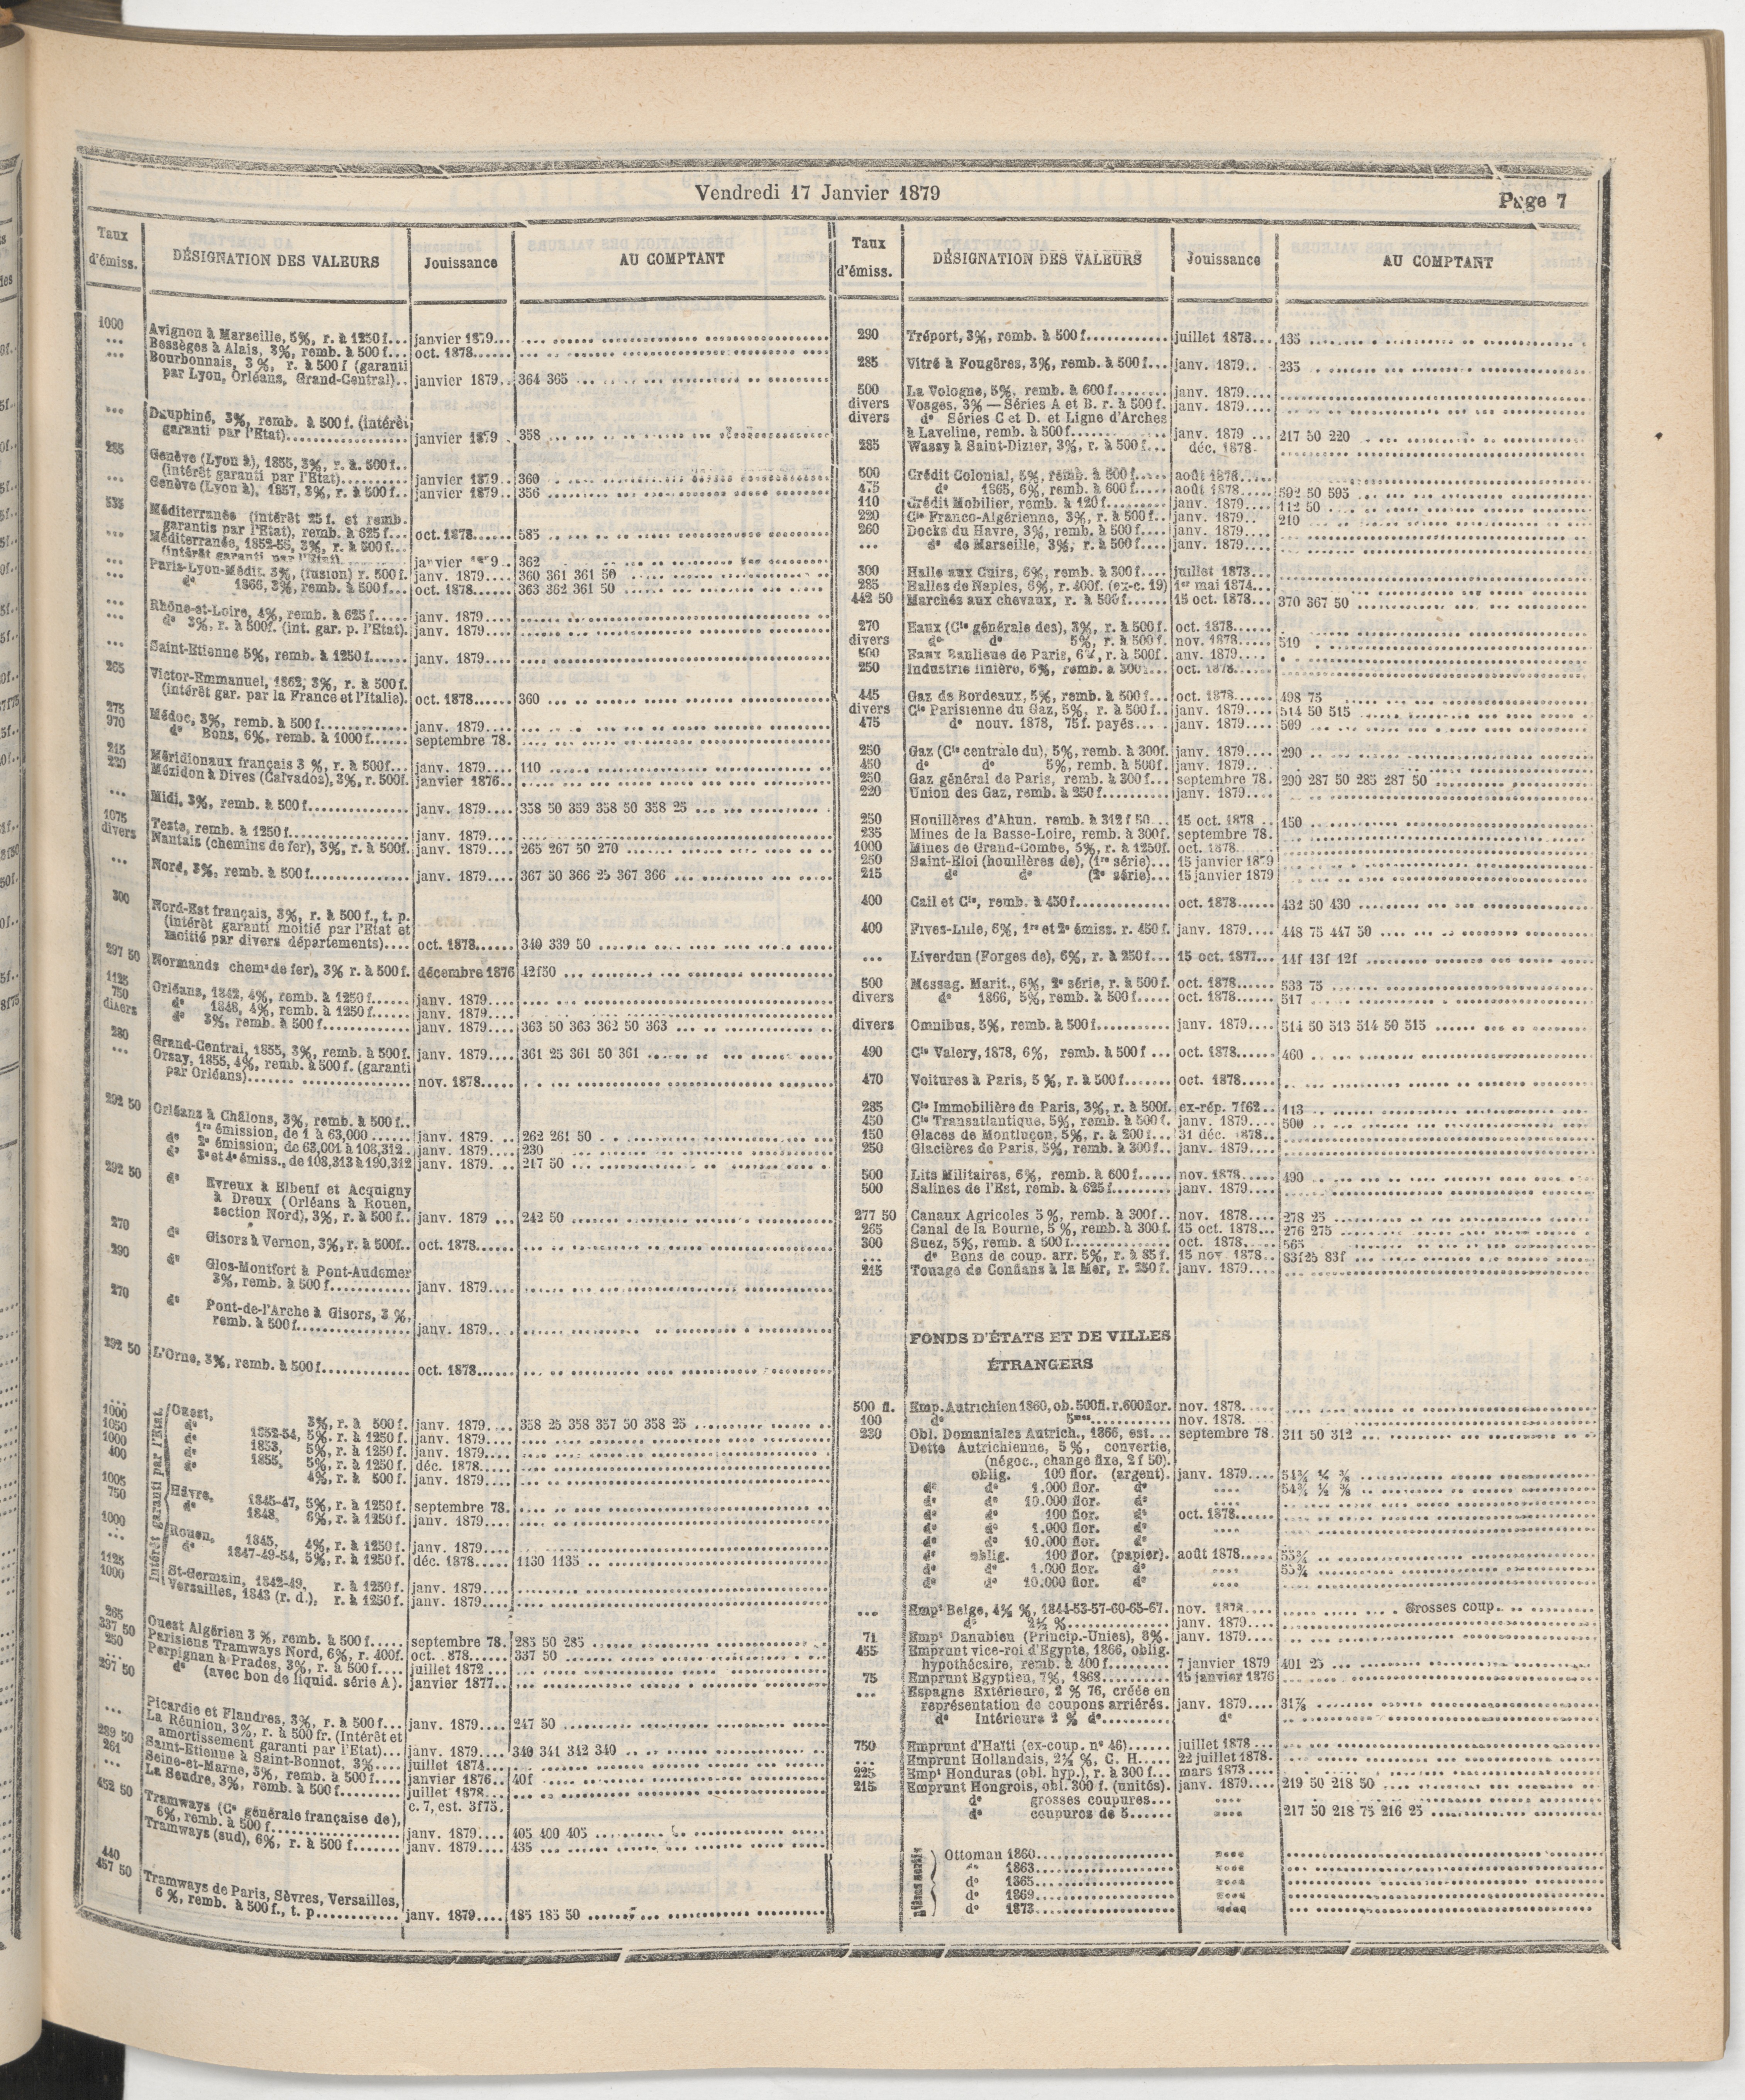 Vendredi 17 Janvier 1879
Page 7
Taux d'émiss. DÉSIGNATION DES VALEURS Jouissance AU COMPTANT
1000 Avignon à Marseille, 5%, r. à 1250 f... janvier 1879...
... Bessèges à Alais, 3%, remb. à 500 f... oct. 1878......
... Bourbonnais, 3%, r. à 500 f (garanti
par Lyon, Orléans, Grand-Central).. janvier 1879.. 364 365
... Dauphiné, 3%, remb. à 500 f. (intérêt
garanti par l'Etat)............... janvier 1879 . 358
285 Genève (Lyon à), 1855, 3%, r. à. 500 f..
(intérêt garanti par l'Etat).......... janvier 1879.. 360
... Genève (Lyon à), 1857, 3%, r. à 500 f.. janvier 1879.. 356
535 Méditerranée (intérêt 25 f. et remb.
garantis par l'Etat), remb. à 625 f... oct. 1878...... 585
... Méditerranée, 1852-55, 3%, r. à 500 f...
(intérêt garanti par l'Etat) janvier 9.. 362
... Paris-Lyon-Médit. 3%, (fusion) r. 500 f. janv. 1879.... 360 361 361 50
... d° 1866, 3%, remb. à 500 f... oct. 1878...... 363 362 361 50
... Rhône-et-Loire, 4%, remb. à 625 f..... janv. 1879....
... d° 3%, r. à 500f. (int. gar. p. l'Etat). janv. 1879....
... Saint-Etienne 5%, remb. à 1250 f...... janv. 1879....
265 Victor-Emmanuel, 1862, 3%, r. à 500 f.
(intérêt gar. par la France et l'Italie). oct. 1878...... 360
275 Médoc, 3%, remb. à 500 f........... janv. 1879....
970 d° Bons, 6%, remb. à 1000 f...... septembre 78.
215 Méridionaux français 3 %, r. à 500f... janv. 1879.... 110
220 Mézidon à Dives (Calvados), 3%, r. 500f. janvier 1876...
... Midi, 3%, remb. à 500 f.............. janv. 1879.... 358 50 359 358 50 358 25
1075 Teste, remb. à 1250 f............... janv. 1879....
divers Nantais (chemins de fer), 3%, r. à 500f. janv. 1879.... 265 267 50 270
... Nord, 3%, remb. à 500 f............. janv. 1879.... 367 50 366 25 367 366
300 Nord-Est français, 3%, r. à 500 f., t. p.
(intérêt garanti moitié par l'Etat et
moitié par divers départements).... oct. 1878...... 340 339 50
297 50 Normands chem de fer), 3% r. à 500f. décembre 1876 42f50
1125 Orléans, 1842, 4%, remb. à 1250 f...... janv. 1879....
750 d° 1848, 4%, remb. à 1250 f...... janv. 1879....
divers d° 3%, remb. à 500 f............ janv. 1879.... 363 50 363 362 50 363
280 Grand-Central, 1855, 3%, remb. à 500f. janv. 1879.... 361 25 361 50 361
... Orsay, 1855, 4%, remb. à 500 f. (garanti
par Orléans)....... nov. 1878.....
292 50 Orléans à Châlons, 3%, remb. à 500 f..
1re émission, de 1 à 63,000 ...... janv. 1879. ... 262 261 50
d° 2e émission, de 63,001 à 108,312.. janv. 1879. ... 230
d° 3e et 4e émiss., de 108,313 à 190,312 janv. 1879. ... 217 50
292 50 d° Evreux à Elbeuf et Acquigny
à Dreux (Orléans à Rouen,
section Nord), 3%, r. à 500 f.. janv. 1879 ... 242 50
270 d° Gisors à Vernon, 3%, r. à 500f.. oct. 1878......
290 d° Glos-Montfort à Pont-Audemer
3%, remb. à 500 f............ janv. 1879....
270 d° Pont-de-l'Arche à Gisors, 3 %,
remb. à 500 f................ janv. 1879....
292 50 L'Orne, 3%, remb. à 500 f............ oct. 1878......
Intérêt garanti par l'Etat.
... Ouest, 3%, r. à 500 f. janv. 1879.... 358 25 358 357 50 358 25
1000 d° 1852-54, 5%. r. à 1250 f. janv. 1879....
1050 d° 1853, 5%, r. à 1250 f. janv. 1879....
1000 d° 1855, 5%, r. à 1250 f. déc. 1878......
400 d° 4%, r. à 500 f. janv. 1879....
1005 Hâvre, 1845-47, 5%, r. à 1250 f. septembre 78.
750 d° 1848, 6%, r. à 1250 f. janv. 1879....
1000 Rouen, 1845, 4%, r. à 1250 f. janv. 1879....
... d° 1847-49-54, 5%, r. à 1250 f. déc. 1878...... 1130 1135
1125 St-Germain, 1842-49, r. à 1250 f. janv. 1879....
1000 Versailles, 1843 (r. d.), r. à 1250 f. janv. 1879....
265 Ouest Algérien 3 %, remb. à 500 f..... septembre 78. 285 50 285
337 50 Parisiens Tramways Nord, 6%, r. 400f. oct. . 878..... 337 50
250 Perpignan à Prades, 3%, r. à 500 f.... juillet 1872 ...
297 50 d° (avec bon de liquid. série A). janvier 1877...
... Picardie et Flandres, 3%, r. à 500 f... janv. 1879.... 247 50
La Réunion, 3%, r. à 500 fr. (Intérêt et
amortissement garanti par l'Etat)... janv. 1879.... 340 341 342 340
289 50 Saint-Etienne à Saint-Bonnet, 3%.... juillet 1874....
261 Seine-et-Marne, 3%, remb. à 500 f.... janvier 1876.. 40f
... La Seudre, 3%, remb. à 500 f......... juillet 1878...
c. 7, est. 3f75.
452 50 Tramways (Ce générale française de),
6%, remb. à 500 f.................. janv. 1879.... 405 400 405
Tramways (sud), 6%, r. à 500 f....... janv. 1879.... 435
440
457 50 Tramways de Paris, Sèvres, Versailles,
6 %, remb. à 500 f., t. p............ janv. 1879.... 185 185 50
Taux d'émiss. DÉSIGNATION DES VALEURS Jouissance AU COMPTANT
290 Tréport, 3%, remb. à 500 f............ juillet 1878... 135
285 Vitré à Fougères, 3%, remb. à 500 f... janv. 1879.. . 235
500 La Vologne, 5%, remb. à 600 f........ janv. 1879....
divers Vosges, 3% — Séries A et B. r. à 500 f. janv. 1879....
divers d° Séries C et D. et Ligne d'Arches
à Laveline, remb. à 500 f............ janv. 1879 ... 217 50 220
285 Wassy à Saint-Dizier, 3%, r. à 500 f... déc. 1878.
500 Crédit Colonial, 5%, remb. à 500 f..... août 1878.....
475 d° 1865, 6%, remb. à 600 f..... août 1878..... 592 50 595
110 Crédit Mobilier, remb. à 120 f......... janv. 1879.... 112 50
220 Cie Franco-Algérienne, 3%, r. à 500 f.. janv. 1879.. . 210
260 Docks du Havre, 3%, remb. à 500 f.... janv. 1879....
... d° de Marseille, 3%, r. à 500 f..... janv. 1879....
300 Halle aux Cuirs, 6%, remb. à 300 f.... juillet 1873...
285 Halles de Naples, 6%, r. 400f. (ex-c. 19) 1er mai 1874...
442 50 Marchés aux chevaux, r. à 500 f...... 15 oct. 1878... 370 367 50
270 Eaux (Cie générale des), 3%, r. à 500 f. oct. 1878......
divers d° d° 5%, r. à 500 f. nov. 1878..... 510
500 Eaux Banlieue de Paris, 6%, r. à 500f. anv. 1879....
250 Industrie linière, 6%, remb. à 300... oct. 1878.....
445 Gaz de Bordeaux, 5%, remb. à 500 f... oct. 1878...... 498 75
divers Cie Parisienne du Gaz, 5%, r. à 500 f.. janv. 1879.... 514 50 515
475 d° nouv. 1878, 75 f. payés... janv. 1879.... 509
250 Gaz (Cie centrale du), 5%, remb. à 300f. janv. 1879.... 290
450 d° d° 5%, remb. à 500f. janv. 1879....
250 Gaz général de Paris, remb. à 300 f... septembre 78. 290 287 50 285 287 50
220 Union des Gaz, remb. à 250 f......... janv. 1879....
250 Houillères d'Ahun. remb. à 312 f 50... 15 oct. 1878 .. 150
235 Mines de la Basse-Loire, remb. à 300f. septembre 78.
1000 Mines de Grand-Combe, 5%, r. à 1250f. oct. 1878......
250 Saint-Eloi (houillères de), (1re série)... 15 janvier 1879
215 d° d° (2e série)... 15 janvier 1879
400 Cail et Cie, remb. à 450 f............. oct. 1878...... 432 50 430
400 Fives-Lille, 6%, 1re et 2e émiss. r. 450 f. janv. 1879.... 448 75 447 50
... Liverdun (Forges de), 6%, r. à 250 f... 15 oct. 1877... 14f 13f 12f
500 Messag. Marit., 6%, 2e série, r. à 500 f. oct. 1878...... 533 75
divers d° 1866, 5%, remb. à 500 f...... oct. 1878...... 517
divers Omnibus, 5%, remb. à 500 f........... janv. 1879.... 514 50 513 514 50 515
490 Cie Valery, 1878, 6%, remb. à 500 f ... oct. 1878...... 460
470 Voitures à Paris, 5 %, r. à 500 f....... oct. 1878.....
285 Cie Immobilière de Paris, 3%, r. à 500f. ex-rép. 7f62.. 113
450 Cie Transatlantique, 5%, remb. à 500 f. janv. 1879.... 500
150 Glaces de Montluçon, 5%, r. à 200 f... 31 déc. 1878..
250 Glacières de Paris, 5%, remb. à 300 f.. janv. 1879....
500 Lits Militaires, 6%, remb. à 600 f...... nov. 1878..... 490
500 Salines de l'Est, remb. à 625 f......... janv. 1879....
277 50 Canaux Agricoles 5 %, remb. à 300f.. nov. 1878.... 278 25
265 Canal de la Bourne, 5 %, remb. à 300 f. 15 oct. 1878... 276 275
300 Suez, 5%, remb. à 500 f.............. oct. 1878..... 565
... d° Bons de coup. arr. 5%, r. à 85 f. 15 nov. 1878.. 83f25 83f
215 Touage de Conflans à la Mer, r. 250 f. janv. 1879....
FONDS D'ÉTATS ET DE VILLES
ÉTRANGERS
500 fl. Emp. Autrichien 1860, ob. 500fl. r. 600flor. nov. 1878....
100 d° 5mes............. nov. 1878.
230 Obl. Domaniales Autrich., 1866, est... septembre 78. 311 50 312
Dette Autrichienne, 5%, convertie,
(négoc., change fixe, 2 f 50).
oblig. 100 flor. (argent). janv. 1879....
d° d° 1.000 flor. d° ....
d° d° 10.000 flor. d° ....
d° d° 100 flor. d° oct. 1878......
d° d° 1.000 flor. d° ....
d° d° 10.000 flor. d°
d° oblig. 100 flor. (papier). août 1878.....
d° d° 1.000 flor. d° ....
d° d° 10.000 flor. d° ....
... Empt Belge, 4½ %, 1844-53-57-60-65-67. nov. 1878.... Grosses coup.
d° 2½ %............... janv. 1879....
71 Empt Danubien (Princip.-Unies), 8%. janv. 1879....
455 Emprunt vice-roi d'Egypte, 1866, oblig.
hypothécaire, remb. à 400 f......... 7 janvier 1879 401 25
75 Emprunt Egyptien, 7%, 1868.......... 15 janvier 1876
... Espagne Extérieure, 2 % 76, créée en
représentation de coupons arriérés. janv. 1879.... 31⅞
d° Intérieure 2 % d°.......... d°
750 Emprunt d'Haïti (ex-coup. n° 46)...... juillet 1878 ...
... Emprunt Hollandais, 2½ %, C. H..... 22 juillet 1878.
225 Empt Honduras (obl. hyp.), r. à 300 f... mars 1873 ....
215 Emprunt Hongrois, obl. 300 f. (unités). janv. 1879.... 219 50 218 50
d° grosses coupures... ....
d° coupures de 5...... .... 217 50 218 75 216 25
Ottoman 1860.................. ....
d° 1863.................. ....
d° 1865.................. ....
d° 1869.................. ....
d° 1873.................. ....